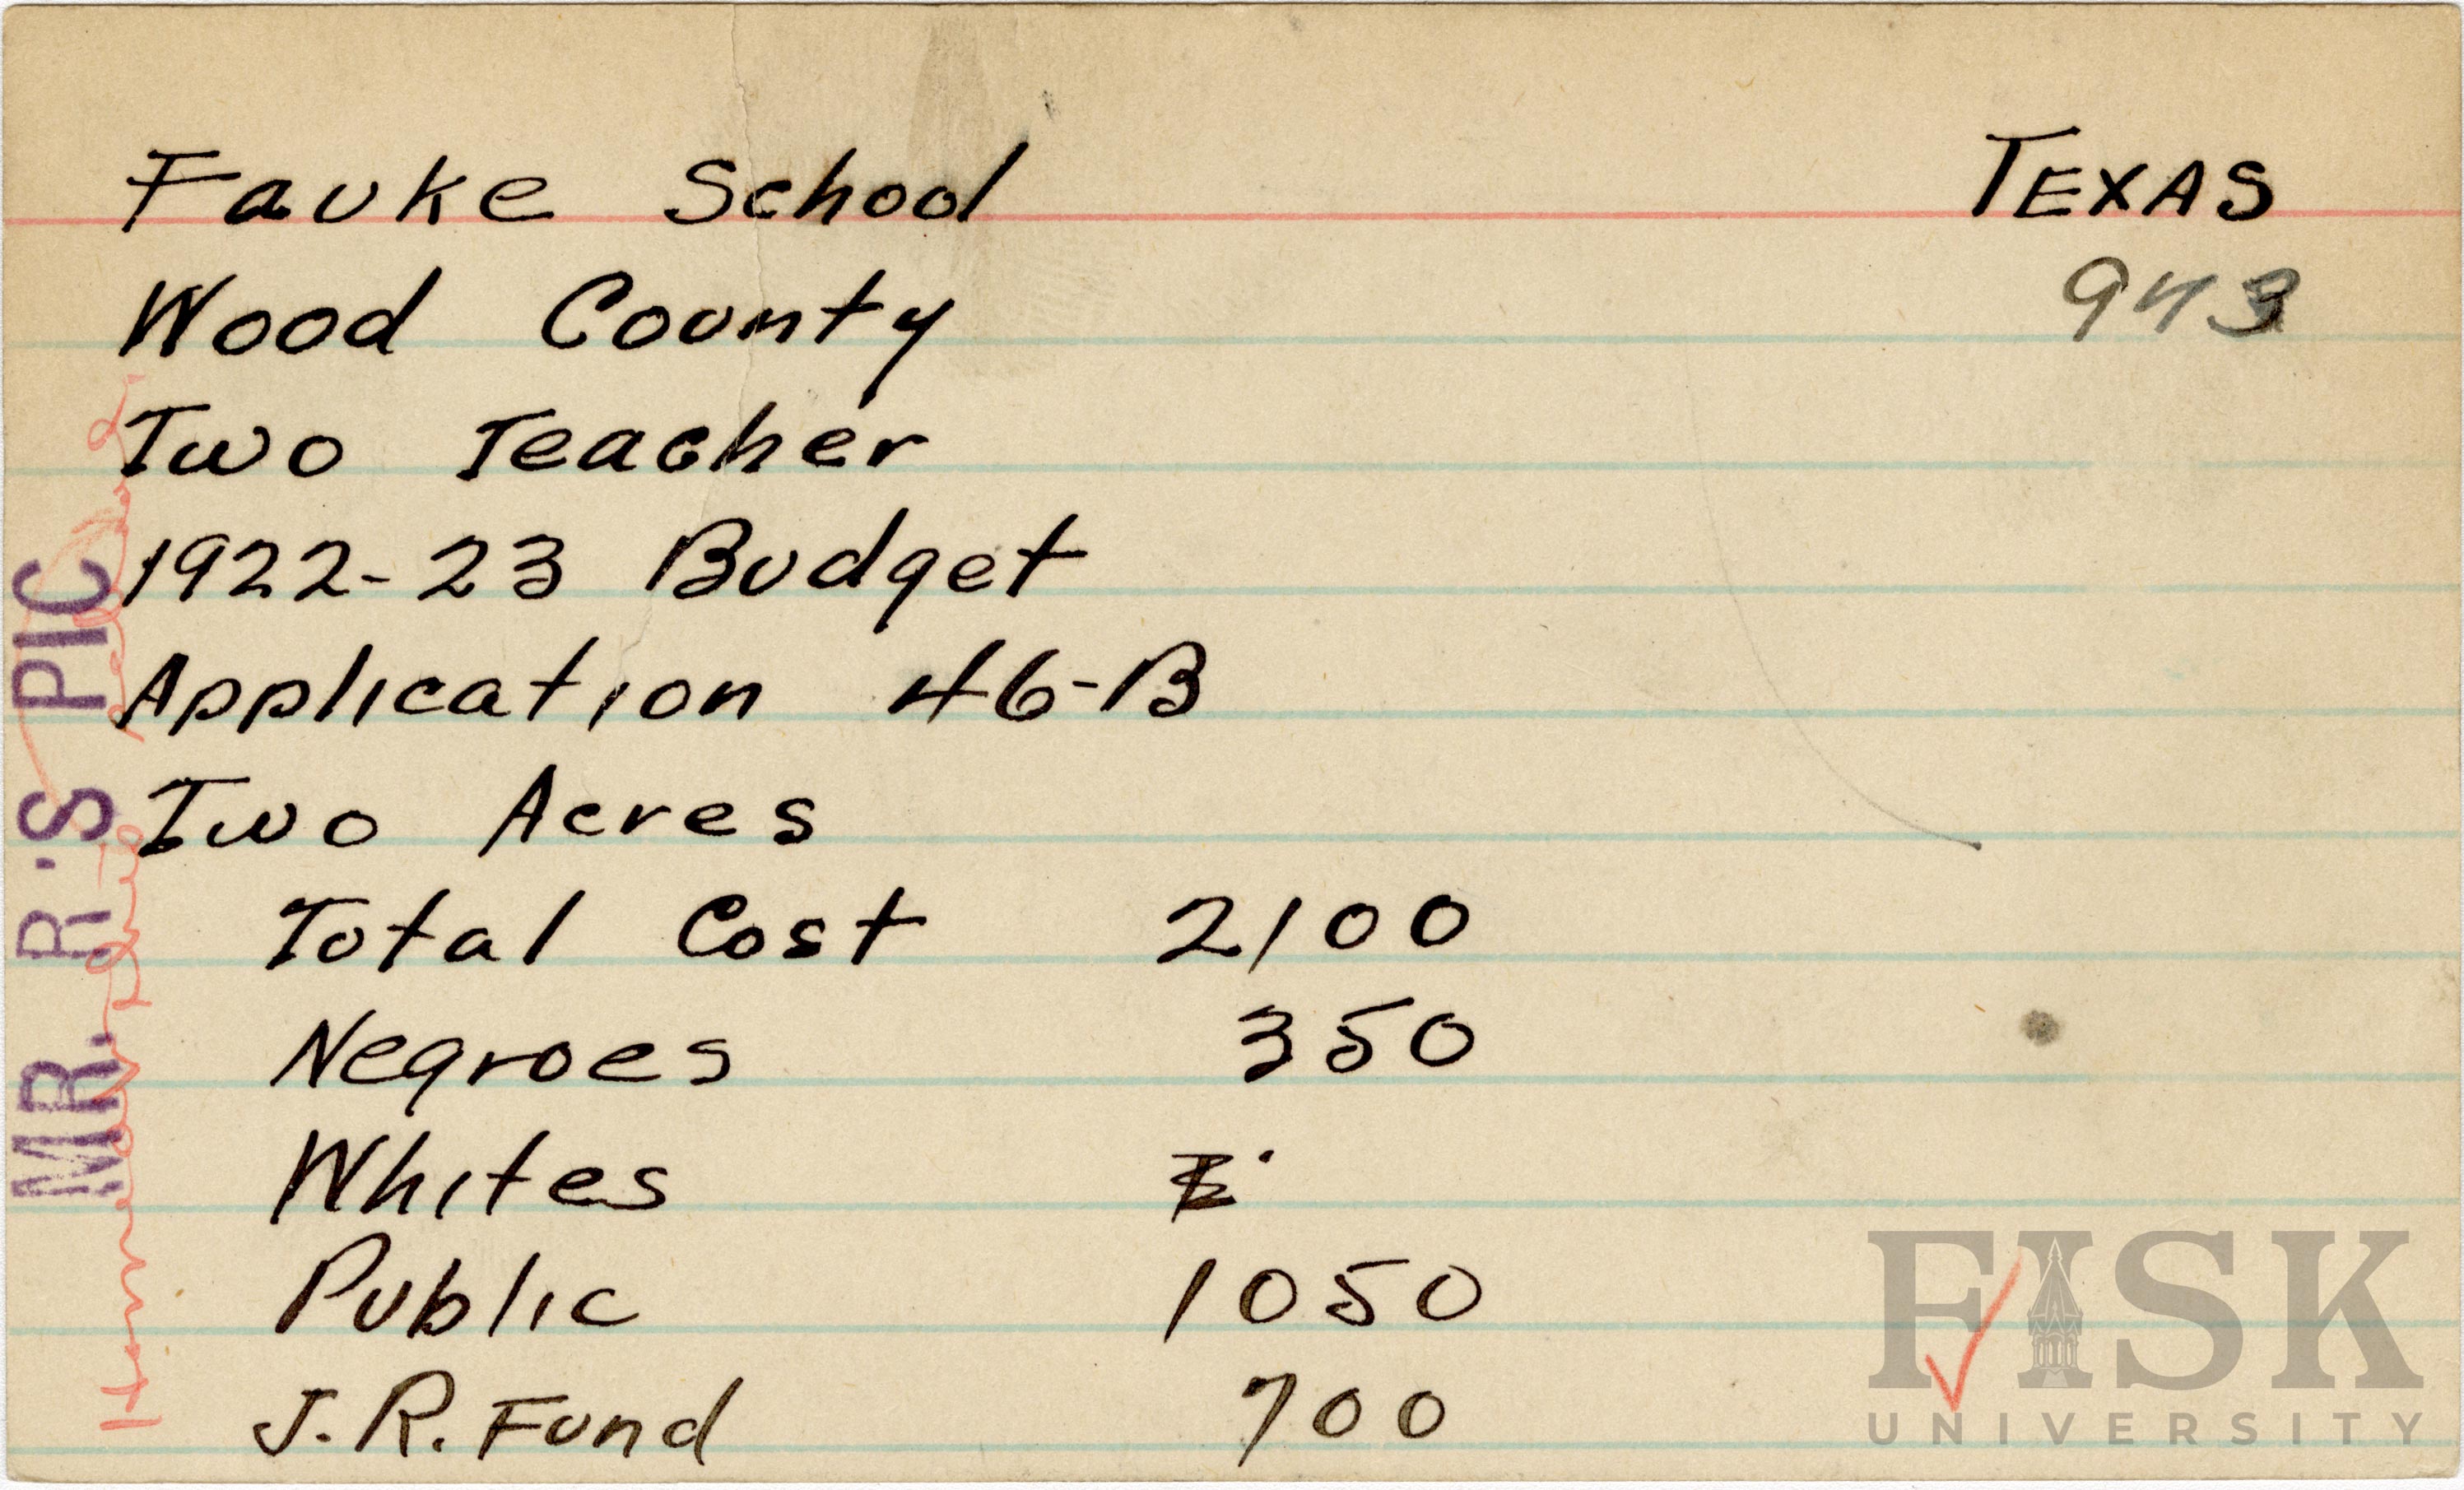 Fauke School TEXAS
Wood County 943
Two Teacher
1922-23 Budget
Application 46-B
Two Acres
Total Cost 2100
Negroes 350
Whites
Public 1050
J.R. Fund 700
MR. R'S PIC
FISK
UNIVERSITY